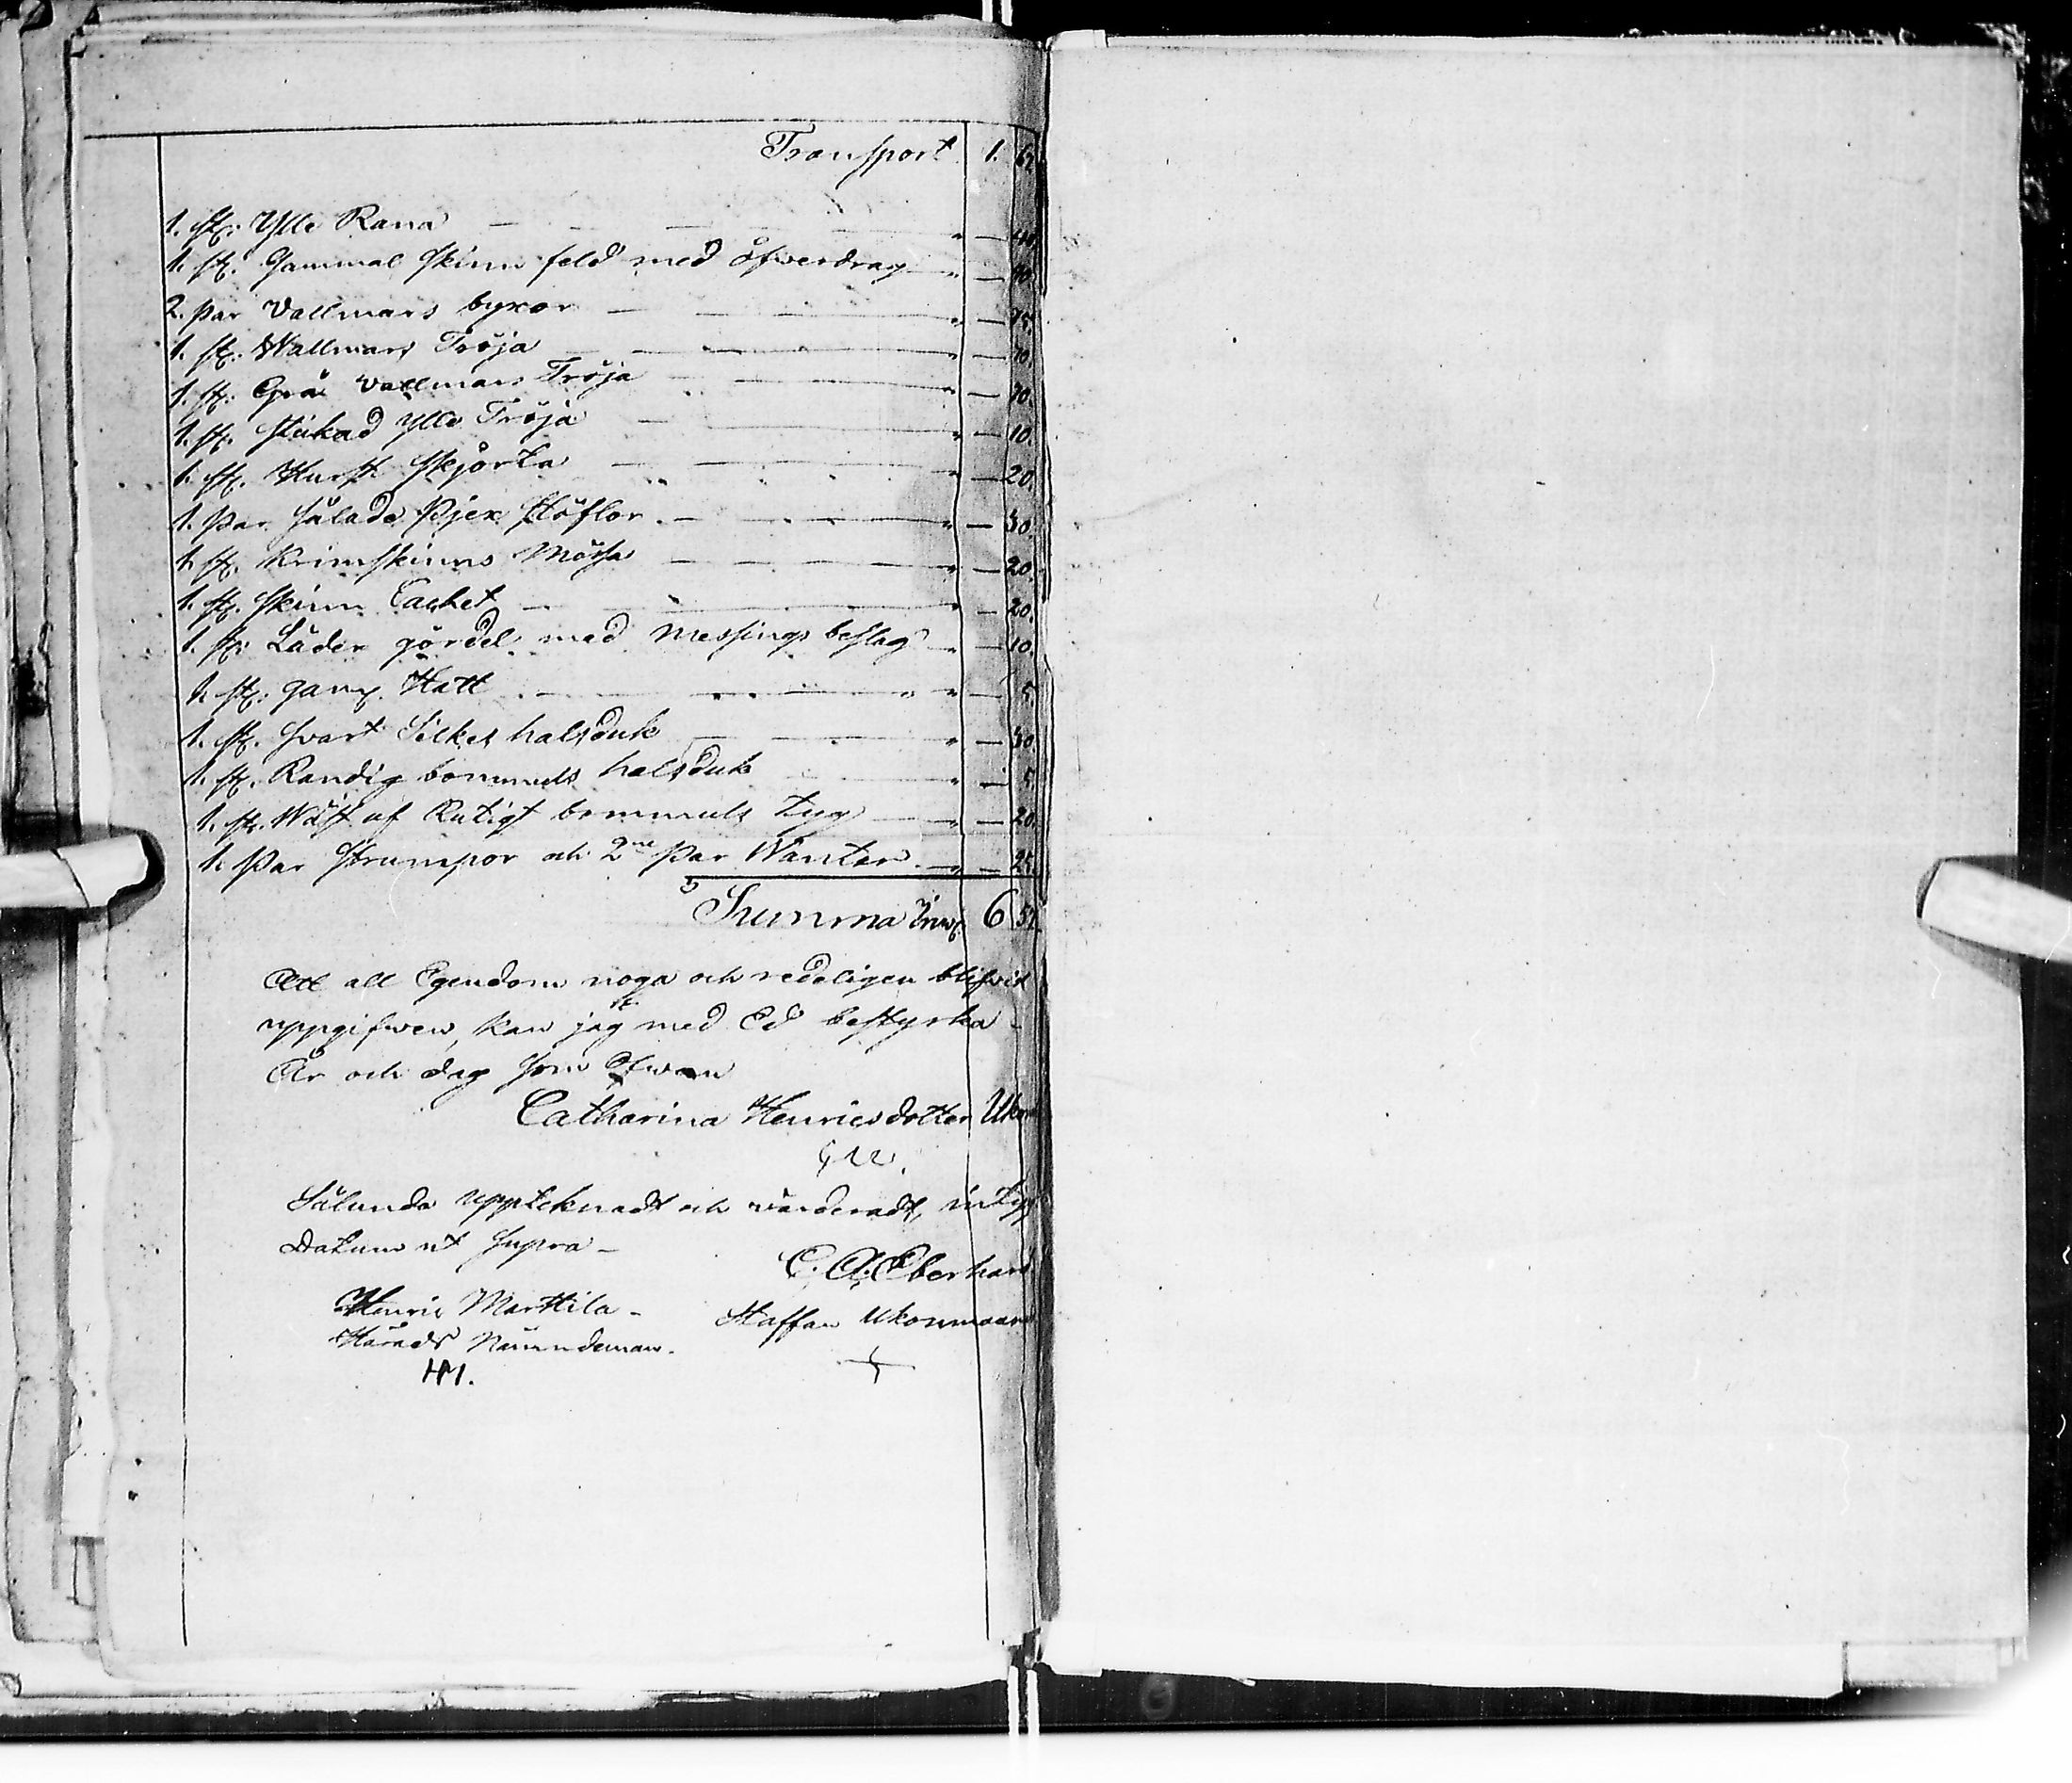 Transport 1. 67.
1. st. Ylle Rana " — 40.
1. st. Gammal skinn feld med öfwerdrag " — 90.
2. par Vallmars byxor " — 75.
1. st. Wallmars Tröja " — 70.
1. st. Grå vallmars Tröja " — 70.
1. st. stickad ylle Tröja " — 10.
1. st. skjorta " — 20.
1. par sålade pjex stöflor " — 30.
1. st. Krimskinns Mössa " — 20.
1. st. skinn Cachet " — 20.
1. st. Läder gördel med Messings beslag " — 10.
1. st. gam. Hatt " — 5.
1. st. svart Silkes halsduk " — 30.
1. st. Randig bommuls halsduk " — 5.
1. st. Wäst af Rutigt bommuls tyg " — 20.
1. Par strumpor och 2ne Par Wantar " — 25.
Summa 6 57.
Att all Egendom noga och redeligen blifvit
uppgifwen, kan jag med Ed bestyrka –
År och dag som Ofwan
Catharina Henricsdotter
Sålunda upptecknadt och värderadt, intyg
Datum ut supra –
C. A. Eberhard
Henric Marttila – Staffan Ukonmaan
Härads Nämndeman.
HM.